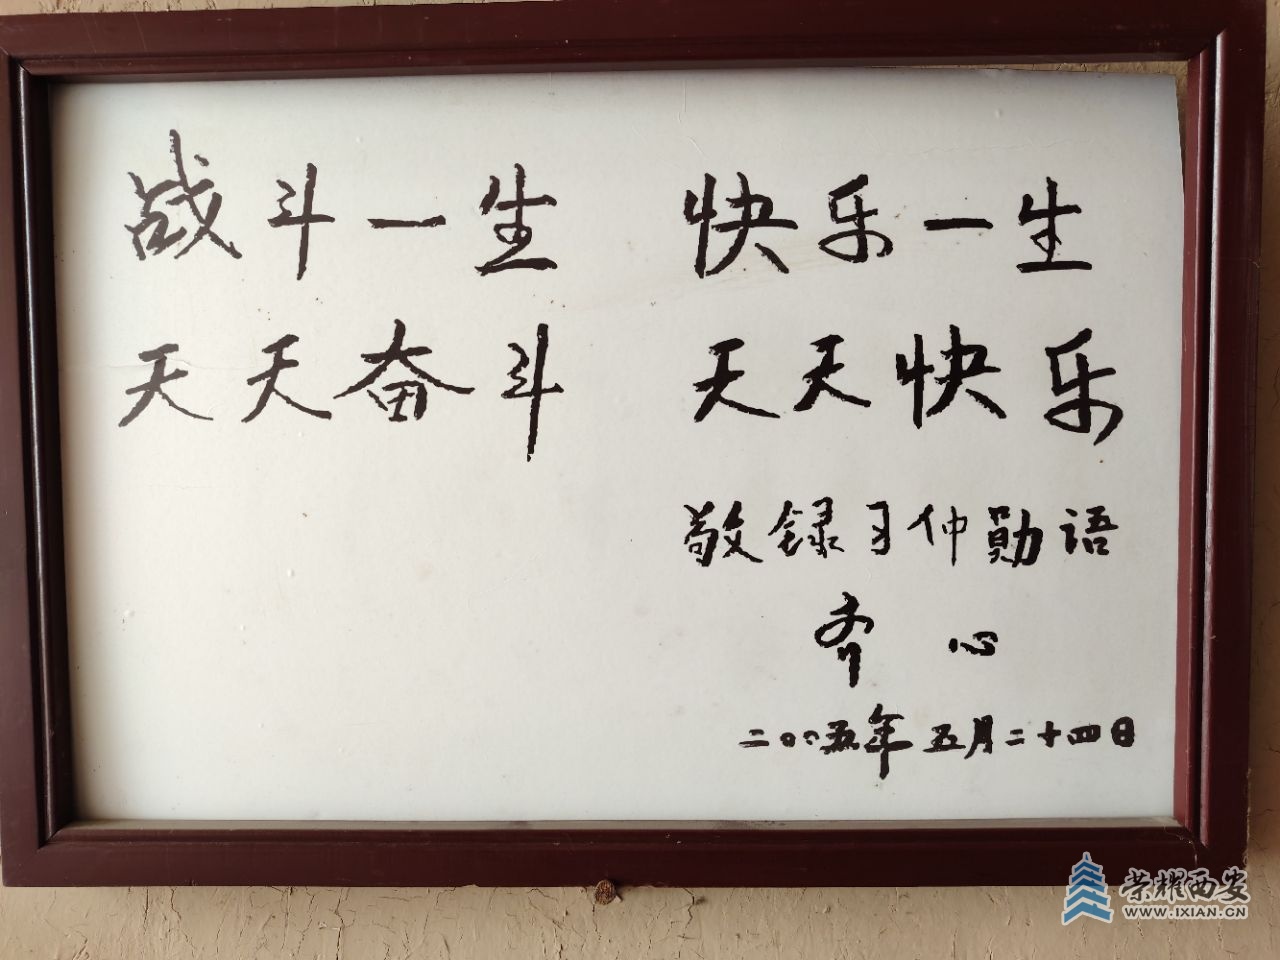 战斗一生 快乐一生
天天奋斗 天天快乐
敬录习仲勋语
齐 心
二〇〇五年五月二十四日
荣耀西安
WWW.IXIAN.CN